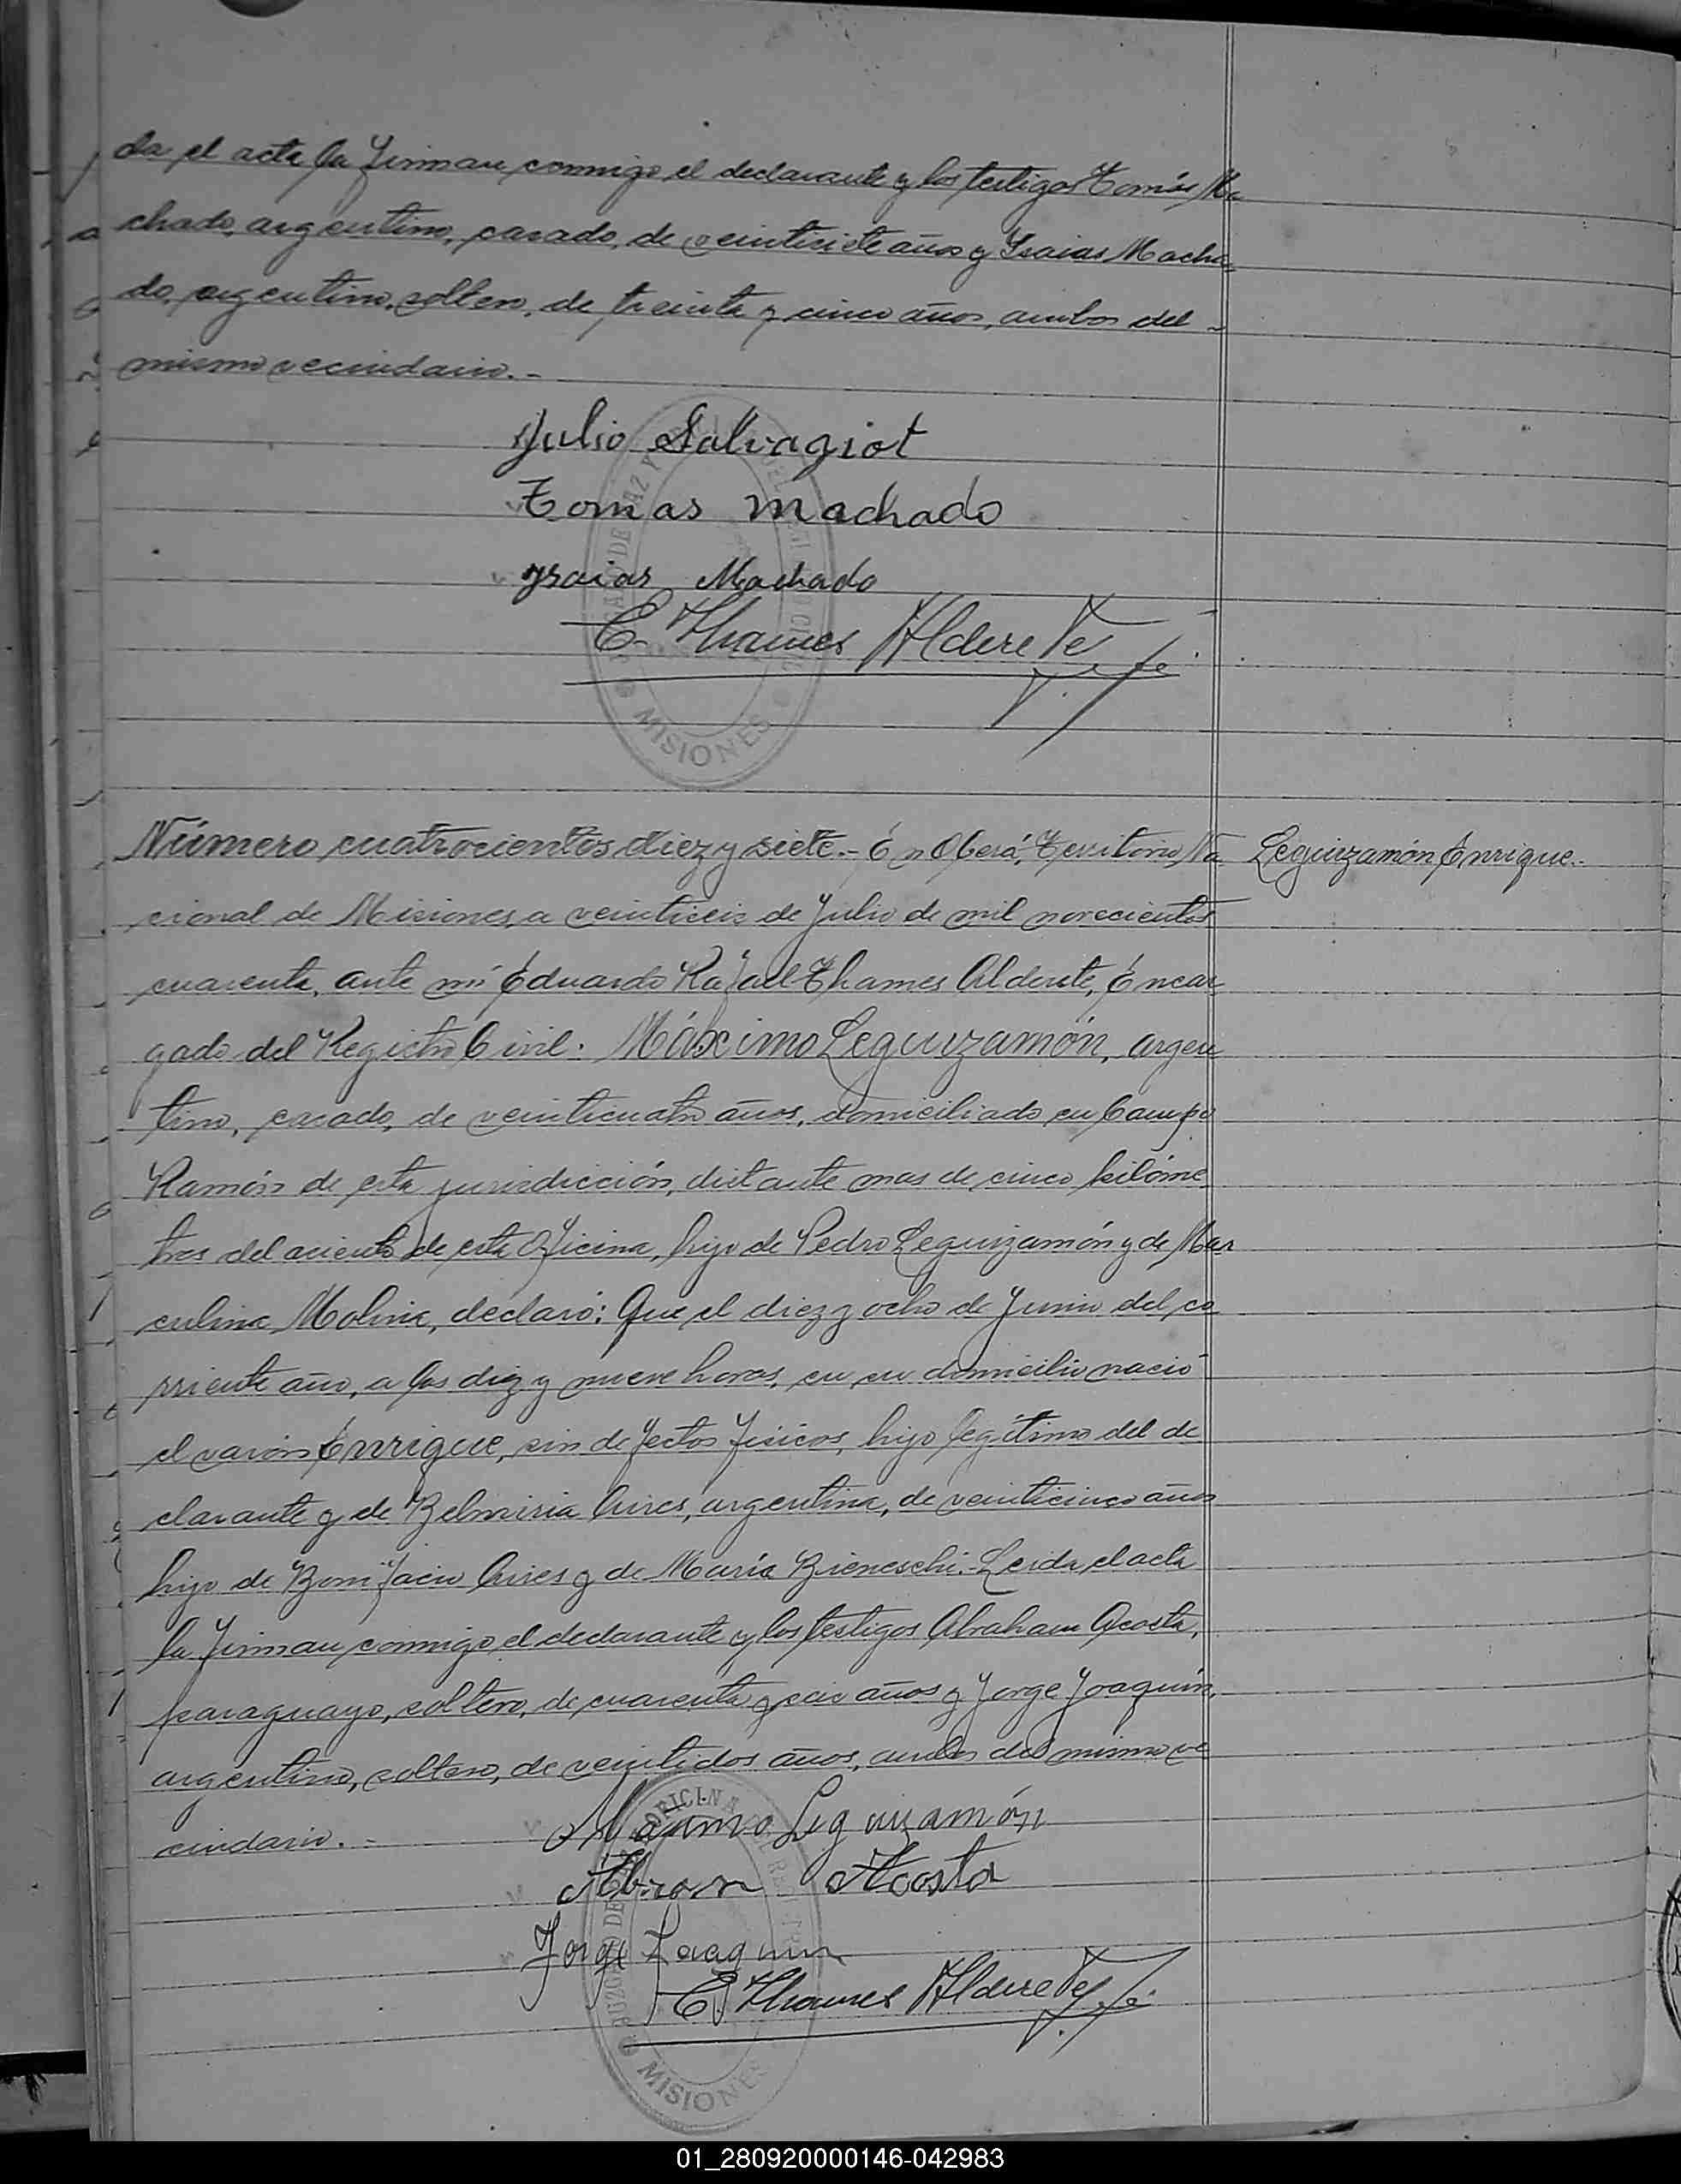 da el acta la firman conmigo el declarante y los testigos Tomás Ma
chado, argentino, casado, de veintisiete años y Isaias Macha
do, argentino, soltero, de treinta y cinco años, ambos del
mismo vecindario.-
Julio Salvagiot
Tomas Machado
Ysaias Machado
E. Thames Alderete
MISIONES
Número cuatrocientos diez y siete.- En Oberá, Territorio Na
Leguizamón Enrique.-
cional de Misiones, a veintiseis de Julio de mil novecientos
cuarenta, ante mi Eduardo Rafael Thames Alderete, Encar
gado del Registro Civil: Máximo Leguizamón, argen
tino, casado, de veinticuatro años, domiciliado en Campo
Ramón de esta jurisdicción, distante mas de cinco kilóme
tros del asiento de esta Oficina, hijo de Pedro Leguizamón y de Mar
culina Molina, declaró: Que el diez y ocho de Junio del co
rriente año, a las diez y nueve horas, en su domicilio nació
el varón Enrique, sin defectos fisicos, hijo legítimo del de
clarante y de Belmiria Aires, argentina, de veinticinco años
hijo de Bonifacio Aires y de María Bieneschi.- Leida el acta
la firman conmigo el declarante y los testigos Abraham Acosta,
paraguayo, soltero, de cuarenta y seis años y Jorge Joaquín,
argentino, soltero, de veintidos años, ambos del mismo ve
cindario.-
Máximo Leguizamón
Abran Acosta
Jorge Joaquin
E. Thames Alderete
MISIONES
01_280920000146-042983